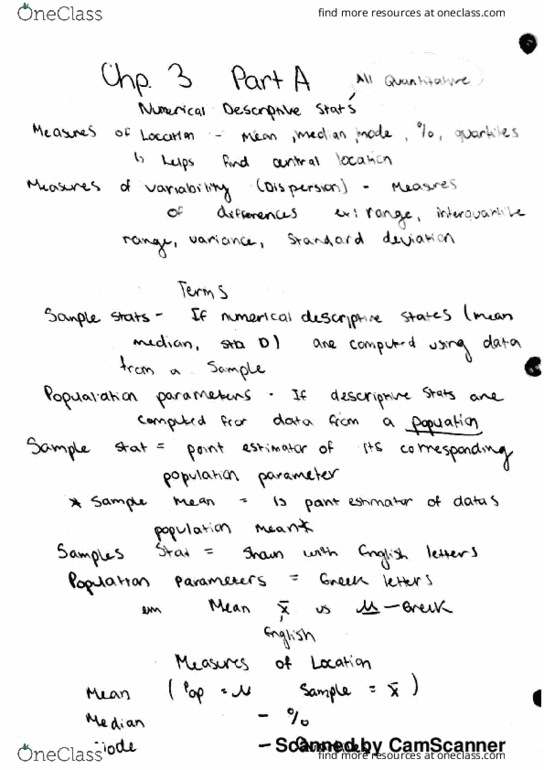 OneClass find more resources at oneclass.com
Chp. 3 Part A All Quantitative
Numerical Descriptive Stats
Measures of Location - Mean, median, mode, %, quartiles
↳ helps find central location
Measures of variability (Dispersion) - Measures
of differences ex: range, interquartile
range, variance, standard deviation
Terms
Sample stats - If numerical descriptive states (mean
median, sta D) are computed using data
from a Sample
Population parameters - If descriptive stats are
computed for data from a population
Sample stat = point estimator of its corresponding
population parameter
* Sample Mean = is point estimator of data's
population mean*
Samples Stat = Shown with English letters
Population Parameters = Greek letters
Mean x̄ vs μ - Greek
English
Measures of Location
Mean (Pop = μ Sample = x̄)
Median - %
Mode - Scanned by CamScanner
OneClass find more resources at oneclass.com